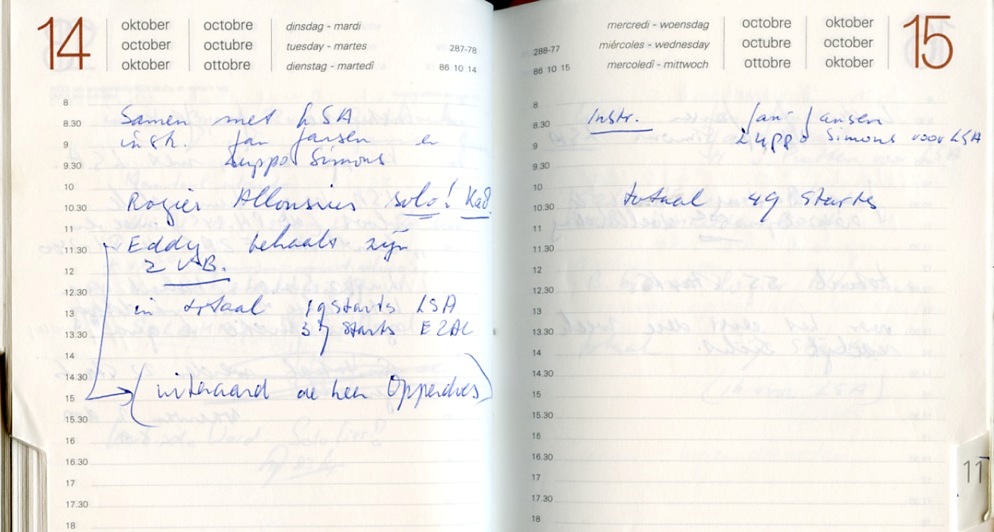 14
oktober octobre dinsdag - mardi
october octubre tuesday - martes 287-78
oktober ottobre dienstag - martedì 86 10 14
8
8.30 Samen met LSA
9 instr. Jan Jansen en
9.30 Luppo Simons
10
10.30 Rogier Allonsius solo! Ka8
11
11.30 Eddy behaalt zijn
12 2 VB.
12.30
13 in totaal 19 starts LSA
13.30 37 starts EZAC
14
14.30
15 (uiteraard de heer Opperdoes)
15.30
16
16.30
17
17.30
18
mercredi - woensdag octobre oktober 15
288-77 miércoles - wednesday octubre october
86 10 15 mercoledì - mittwoch ottobre oktober
8
8.30 Instr. Jan Jansen
9 Luppo Simons voor LSA
9.30
10
10.30 totaal 49 starts
11
11.30
12
12.30
13
13.30
14
14.30
15
15.30
16
16.30
17
17.30
18
11